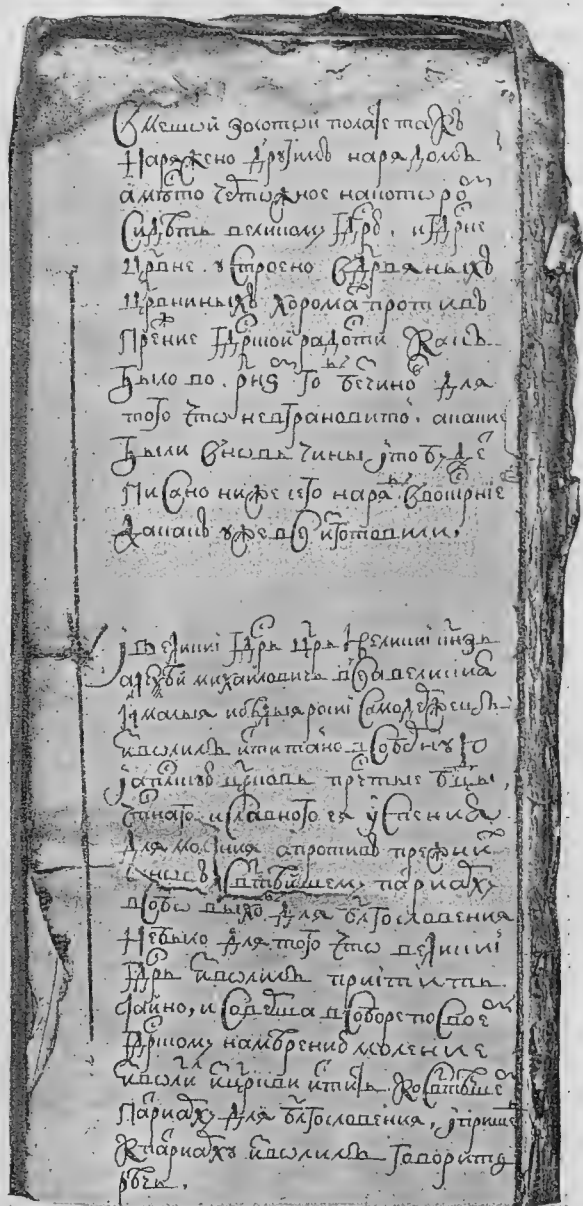 В мешой золотой полате такъ
наряжено другимъ нарядомъ
а мѣсто чертожное на которо
сидѣть великому гдрю, и гдрне
црвне. устроено в дрвяных
црвниныхъ хорома противъ
прежние гдрской радости какъ
было во рнѕ го без чино для
того что не в грановито. а какие
были вновь чины и то буде
писано ниже сего наря в
а какъ уже все изготовили,
И великиі гдрь црь и великиі кнзь
алеѯѣй михаиловичь всеа великия
и малыя и бѣлыя росиі самодержецъ
изволилъ итить тайно в соборную
и апслкую црковь прчстые бцы,
чстнаго и славного ея успения
для моления а противъ прежни
чиновъ к свтѣйшему патриарху
в собо выхо для блгословения
не было для того что великиі
гдрь изволилъ притить
тайно, и соверша в соборе по свое
гдрскому намѣрению моление
изволи ис церкви итить ко свтѣйше
патриарху для блгословения, и прише
к патриарху изволилъ говорить
рѣчь.